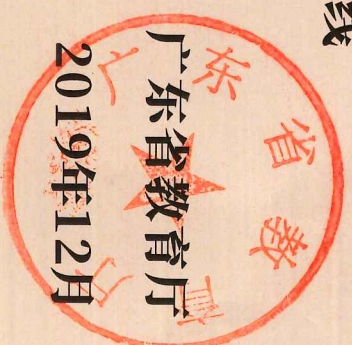 线
广东省教育厅
2019年12月
广东省教育厅